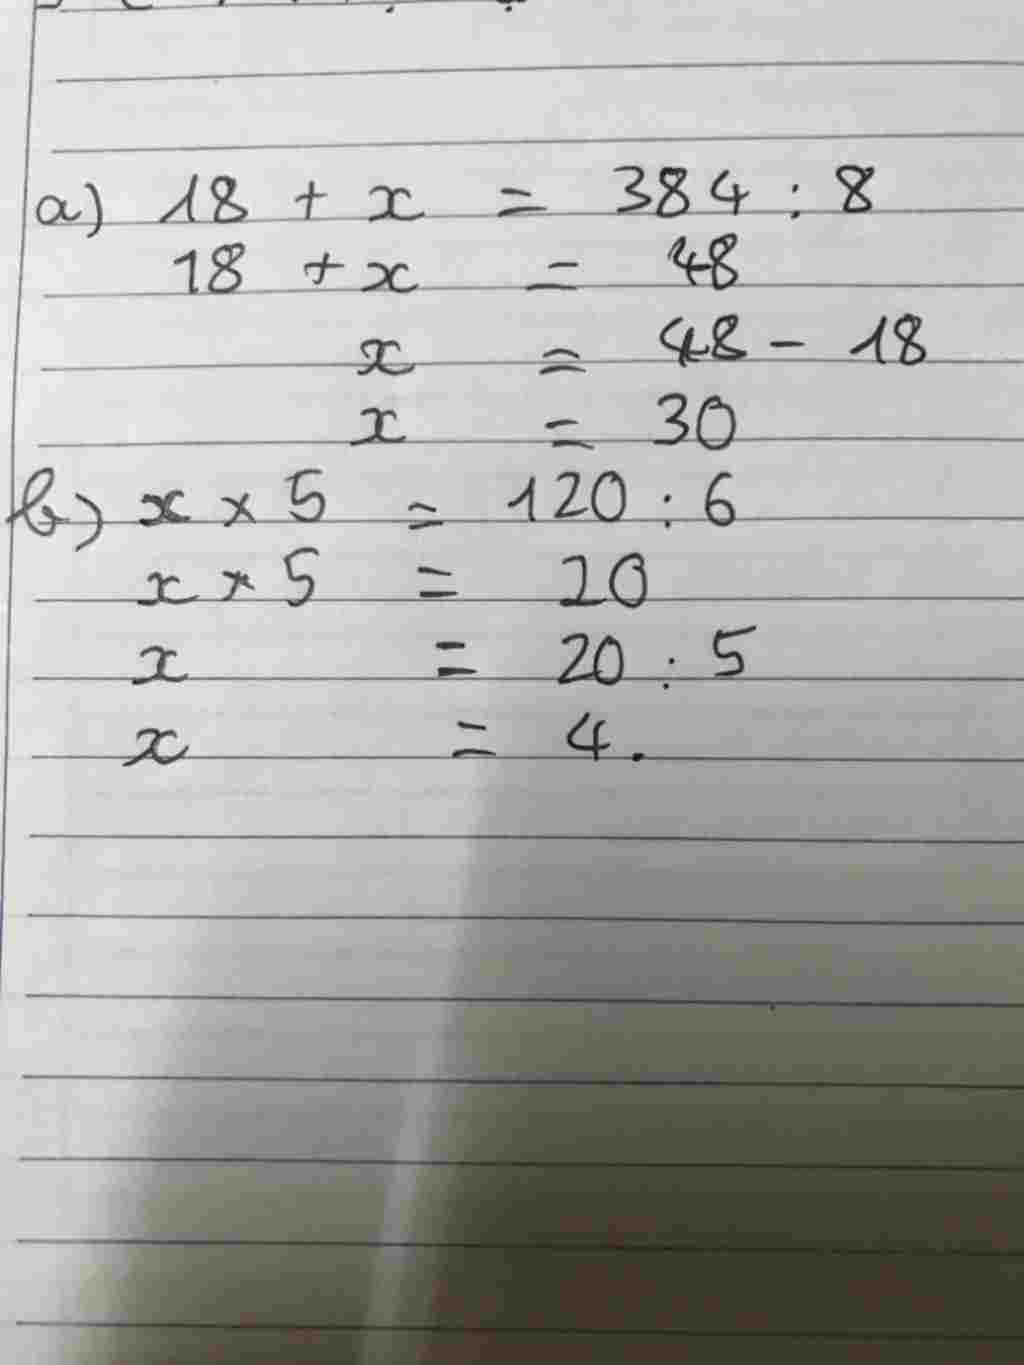 a) 18 + x = 384 : 8
18 + x = 48
x = 48 - 18
x = 30
b) x × 5 = 120 : 6
x × 5 = 20
x = 20 : 5
x = 4.